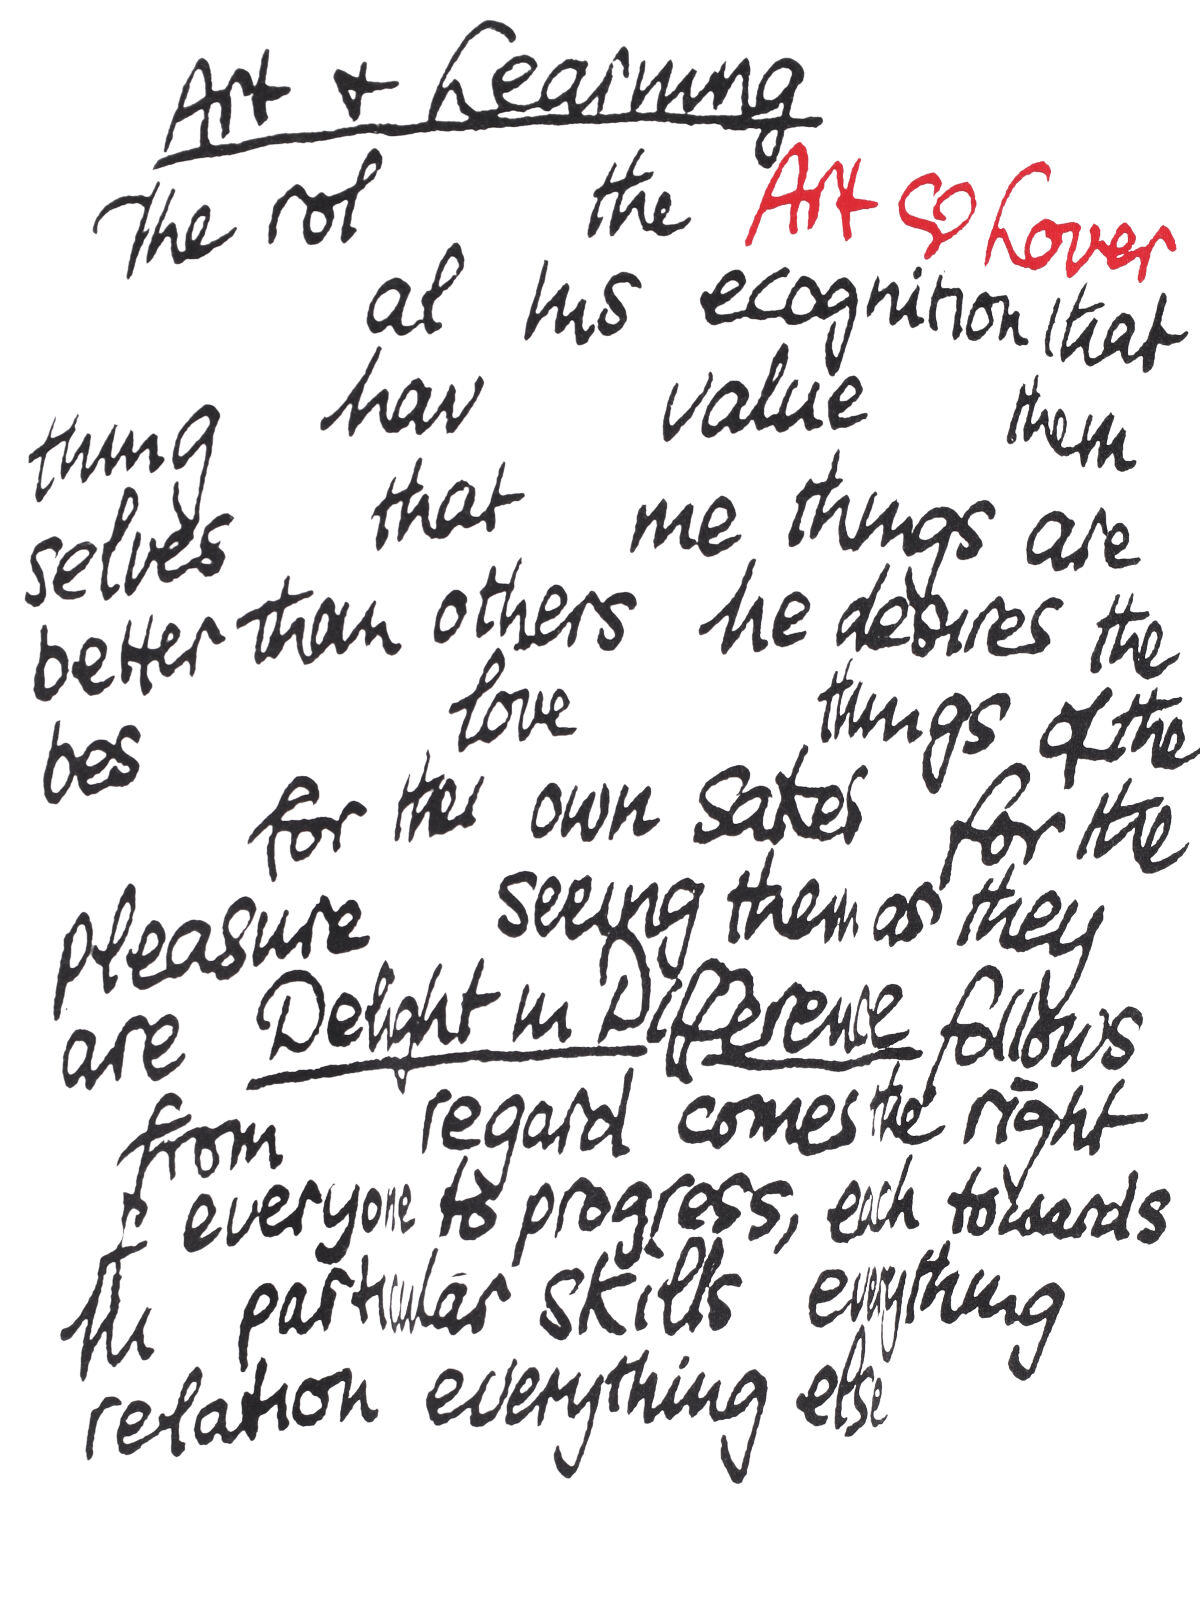 Art + Learning
The rol the Art ♡ Lover
al his ecognition that
thing hav value them
selves that me things are
better than others he desires the
bes love things of the
for their own sakes for the
pleasure seeing them as they
are Delight in Difference follows
from regard comes the right
f everyone to progress, each towards
thi particular skills everything
relation everything else